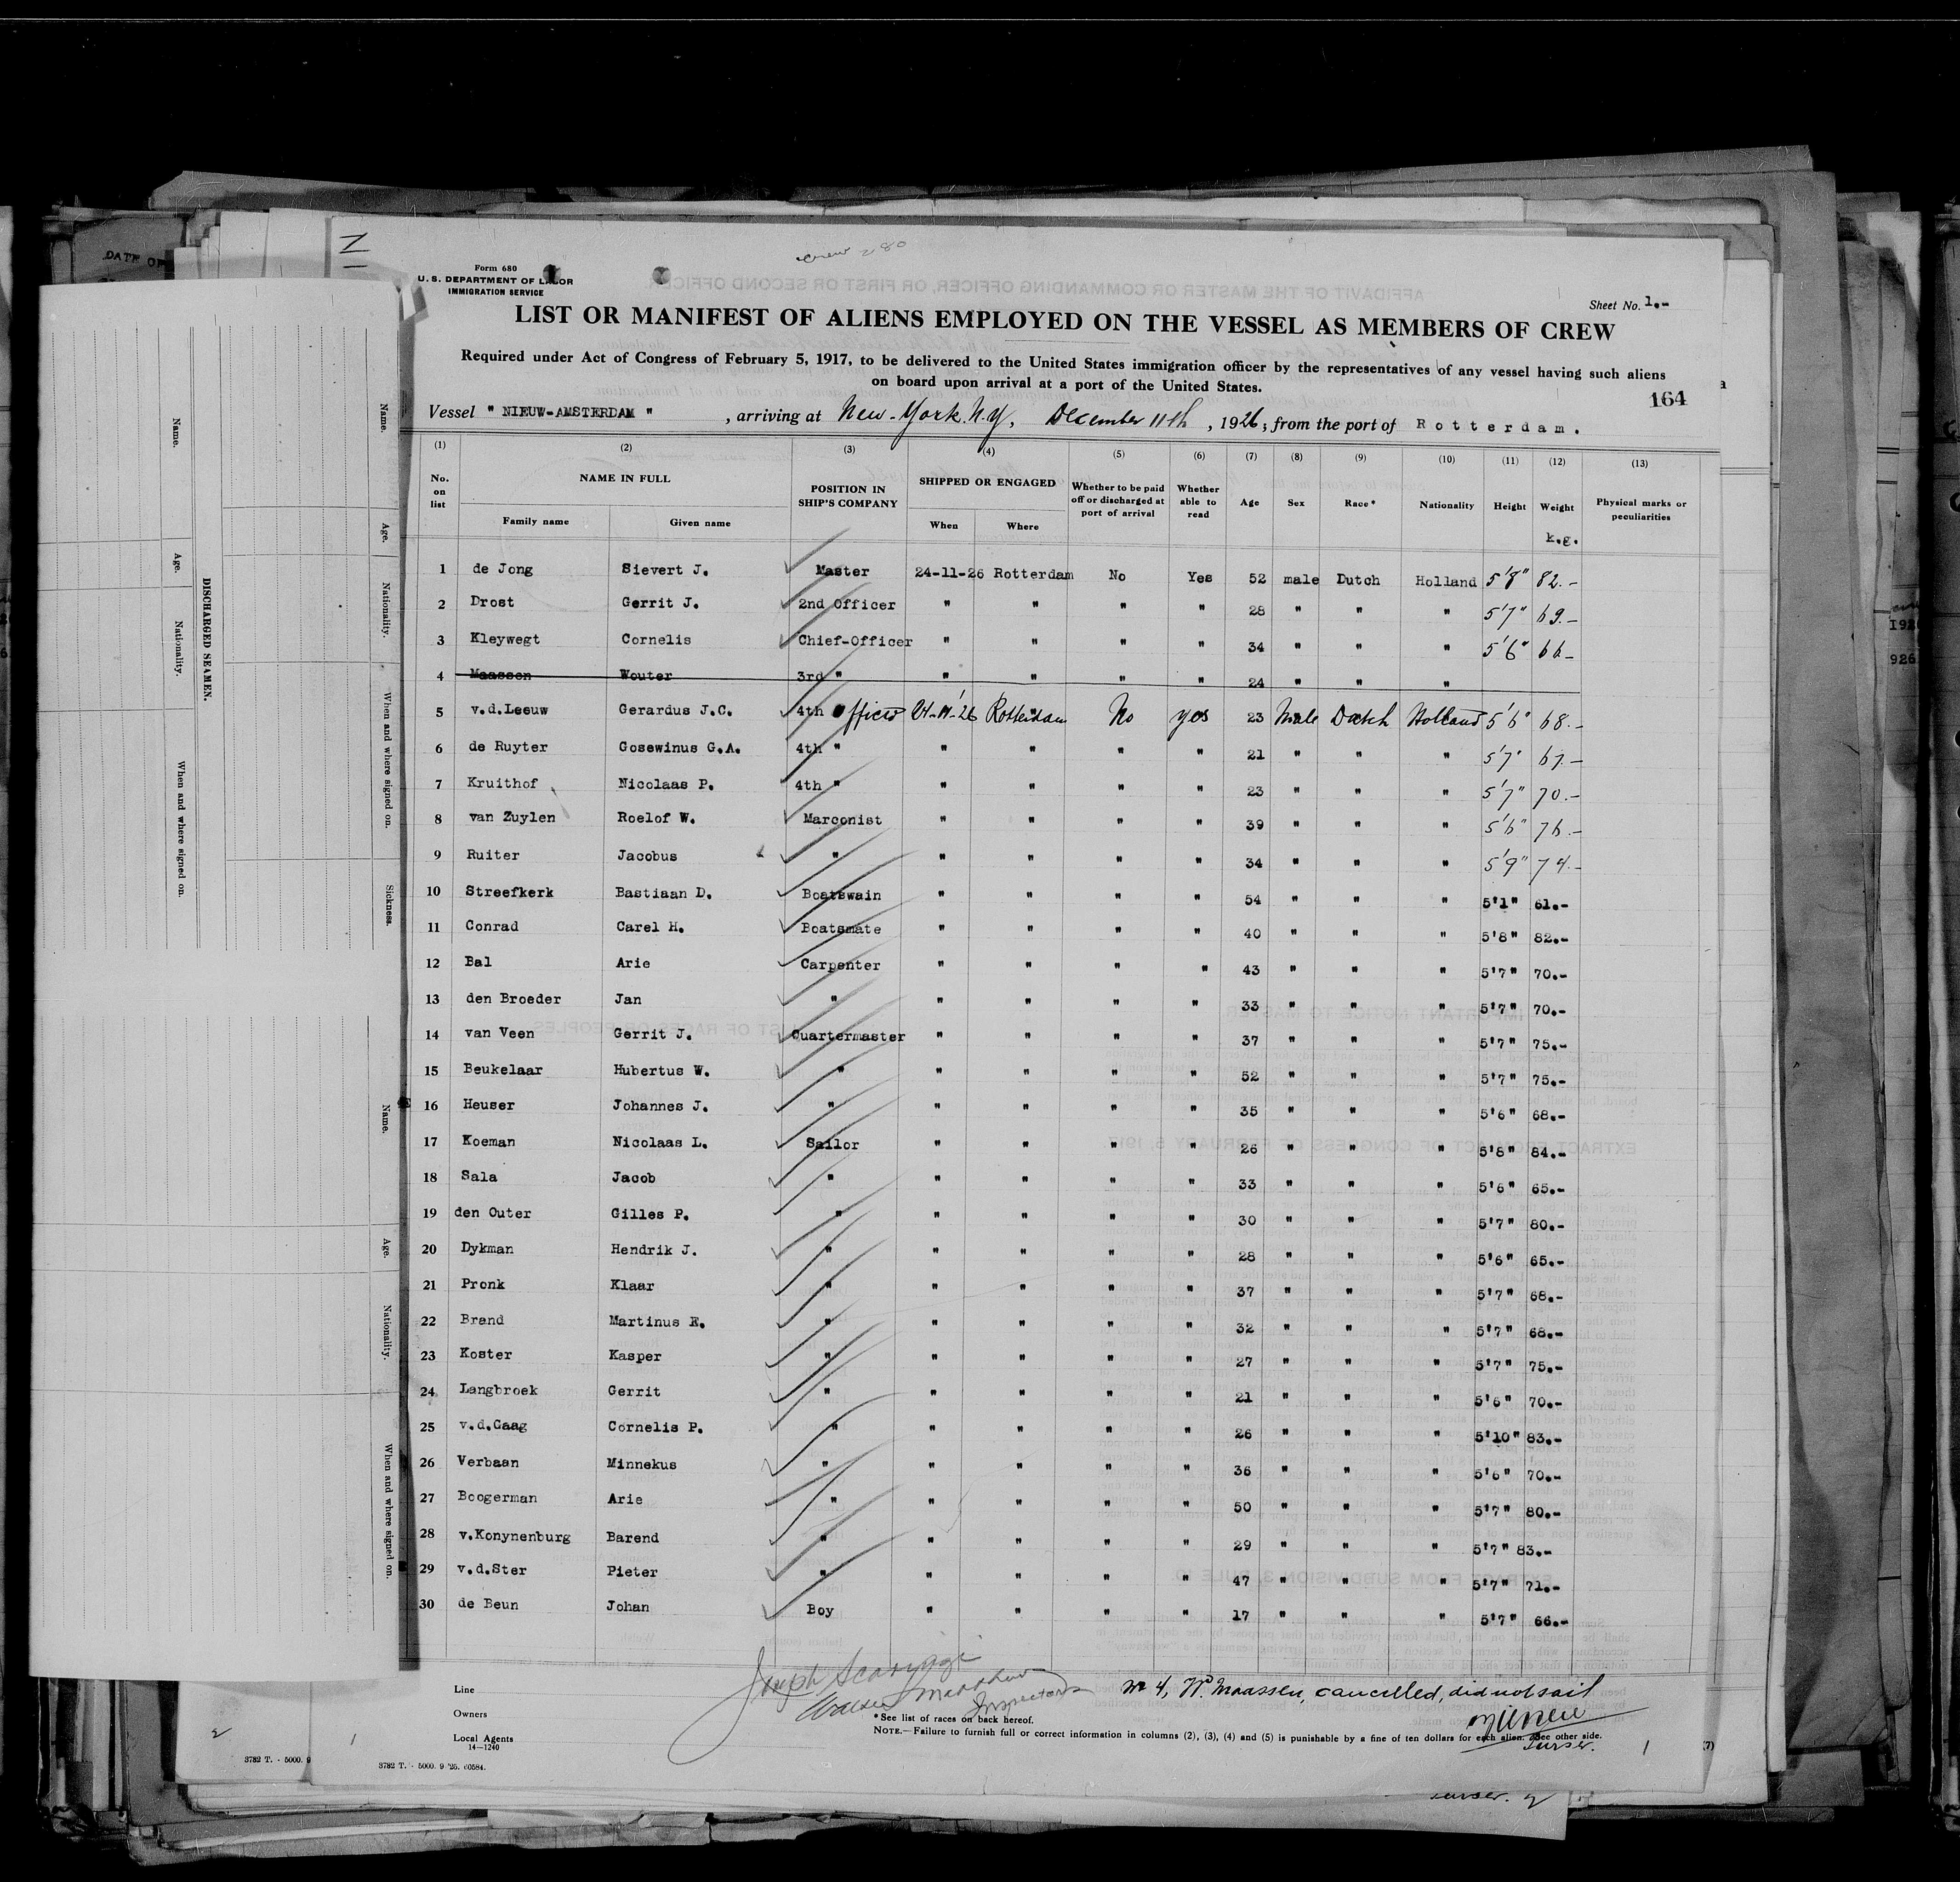 crew 280
Form 680
U. S. DEPARTMENT OF LABOR
IMMIGRATION SERVICE
Sheet No. 1.-
LIST OR MANIFEST OF ALIENS EMPLOYED ON THE VESSEL AS MEMBERS OF CREW
Required under Act of Congress of February 5, 1917, to be delivered to the United States immigration officer by the representatives of any vessel having such aliens
on board upon arrival at a port of the United States.
164
Vessel " NIEUW-AMSTERDAM " , arriving at New-York. N.Y. December 11th , 1926; from the port of Rotterdam.
(1) (2) (3) (4) (5) (6) (7) (8) (9) (10) (11) (12) (13)
No. on list NAME IN FULL POSITION IN SHIP'S COMPANY SHIPPED OR ENGAGED Whether to be paid off or discharged at port of arrival Whether able to read Age Sex Race* Nationality Height Weight Physical marks or peculiarities
Family name Given name When Where k.g.
1 de Jong Sievert J. Master 24-11-26 Rotterdam No Yes 52 male Dutch Holland 5'8" 82.-
2 Drost Gerrit J. 2nd Officer " " " " 28 " " " 5'7" 69.-
3 Kleywegt Cornelis Chief-Officer " " " " 34 " " " 5'6" 66-
4 Maassen Wouter 3rd " " " " " 24 " " "
5 v.d.Leeuw Gerardus J.C. 4th Officer 24-11-'26 Rotterdam No yes 23 Male Dutch Holland 5'6" 68.-
6 de Ruyter Gosewinus G.A. 4th " " " " " 21 " " " 5'7" 67.-
7 Kruithof Nicolaas P. 4th " " " " " 23 " " " 5'7" 70.-
8 van Zuylen Roelof W. Marconist " " " " 39 " " " 5'6" 76.-
9 Ruiter Jacobus " " " " " 34 " " " 5'9" 74.-
10 Streefkerk Bastiaan D. Boatswain " " " " 54 " " " 5'1" 61.-
11 Conrad Carel H. Boatsmate " " " " 40 " " " 5'8" 82.-
12 Bal Arie Carpenter " " " " 43 " " " 5'7" 70.-
13 den Broeder Jan " " " " " 33 " " " 5'7" 70.-
14 van Veen Gerrit J. Quartermaster " " " " 37 " " " 5'7" 75.-
15 Beukelaar Hubertus W. " " " " " 52 " " " 5'7" 75.-
16 Heuser Johannes J. " " " " " 35 " " " 5'6" 68.-
17 Koeman Nicolaas L. Sailor " " " " 26 " " " 5'8" 84.-
18 Sala Jacob " " " " " 33 " " " 5'6" 65.-
19 den Outer Gilles P. " " " " " 30 " " " 5'7" 80.-
20 Dykman Hendrik J. " " " " " 28 " " " 5'6" 65.-
21 Pronk Klaar " " " " " 37 " " " 5'7" 68.-
22 Brand Martinus E. " " " " " 32 " " " 5'7" 68.-
23 Koster Kasper " " " " " 27 " " " 5'7" 75.-
24 Langbroek Gerrit " " " " " 21 " " " 5'6" 70.-
25 v.d.Gaag Cornelis P. " " " " " 26 " " " 5'10" 83.-
26 Verbaan Minnekus " " " " " 36 " " " 5'6" 70.-
27 Boogerman Arie " " " " " 50 " " " 5'7" 80.-
28 v.Konynenburg Barend " " " " " 29 " " " 5'7" 83.-
29 v.d.Ster Pieter " " " " " 47 " " " 5'7" 71.-
30 de Beun Johan Boy " " " " 17 " " " 5'7" 66.-
Line
Owners
Local Agents
14-1240
Joseph
Inspectors
No 4, W. Maassen, cancelled, did not sail
Purser.
*See list of races on back hereof.
NOTE.—Failure to furnish full or correct information in columns (2), (3), (4) and (5) is punishable by a fine of ten dollars for each alien. See other side.
1
(7)
3782 T. - 5000. 9 '25. 60584.
3782 T. - 5000. 9
2
1
Purser. 2
DATE OF
DISCHARGED SEAMEN.
Name.
Age.
Nationality.
When and where signed on.
Sickness.
Name.
Age.
Nationality.
When and where signed on.
Name.
Age.
Nationality.
When and where signed on.